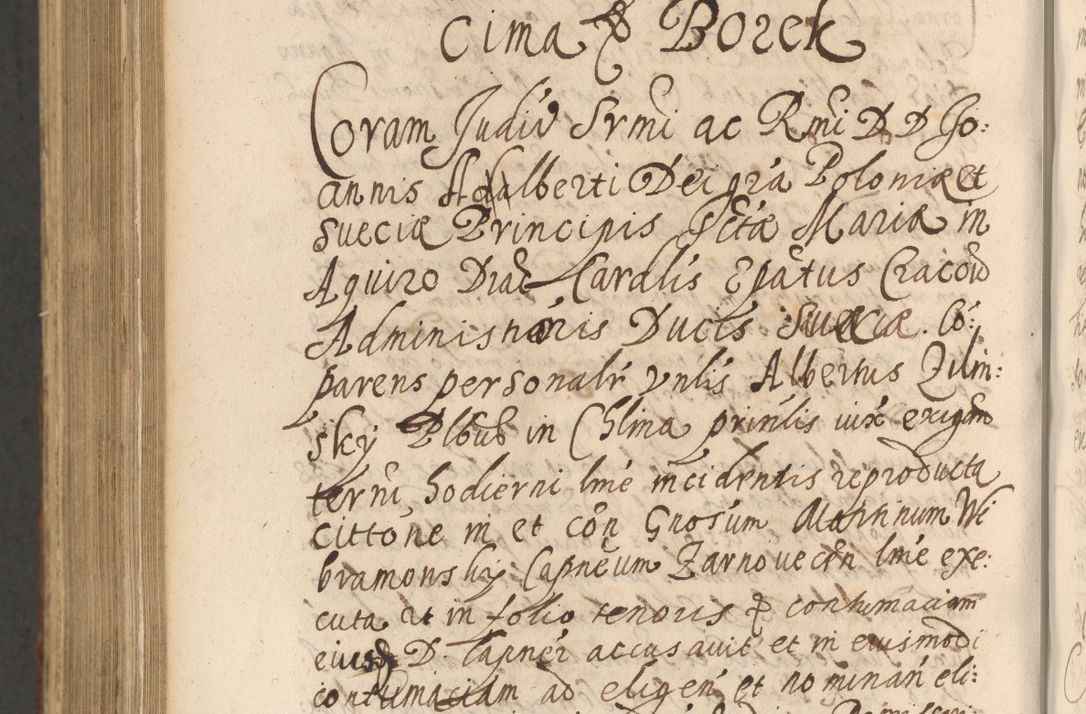 Cima & Borek
Coram Judiu Srmi ac Rmi D D Jo:
annis Adalberti Dei gra Poloniæ et
Sueciæ Principis Sctæ Mariæ in
Aquiro Diac Cardlis Epatus Cracow
Administratoris Ducis Sueciæ. Co:
parens personalr vnlis Albertus Zilin:
sky Plbus in Chlina prinlis iux exigm
term hodierni lme incidentis reproducta
Cittone in et con Gnosum Martinum Wi
bramonsky Capneum Zarnovecen lme exe:
cuta ut in folio tenoris & contumaciam
eiusd D. Capnei accusavit et in eiusmodi
contumaciam ad eligen et nominan eli: